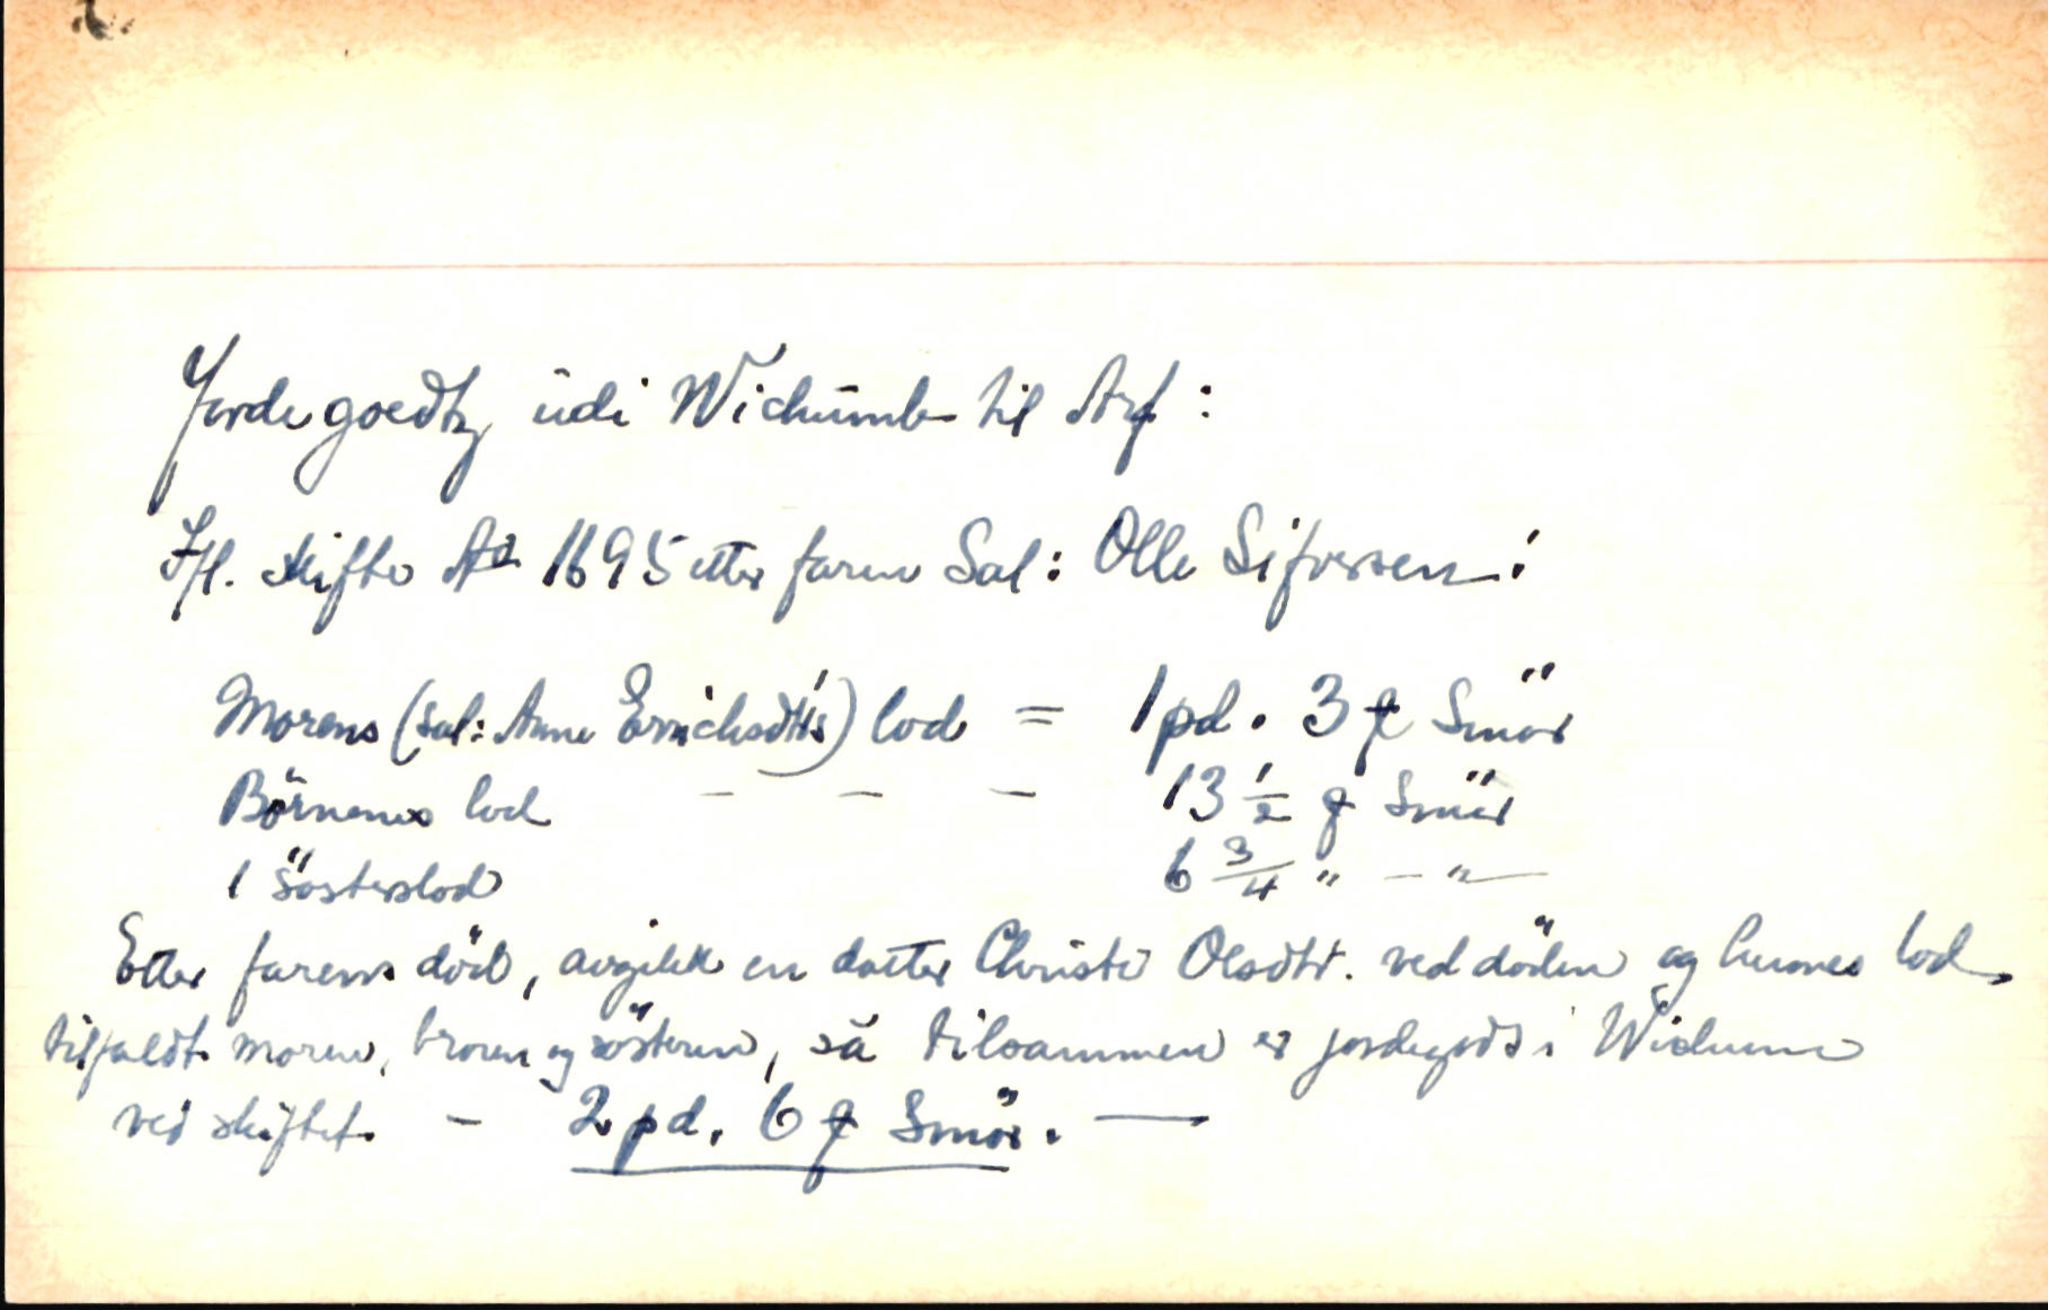 Jorde goedtz ûdi Wichûmb til Arf:
Ifl. skifte Aº 1695 etter faren Sal: Olle Sifversen:
Morens (sal: Anne Erichsdtr's) lod = 1 pd. 3 ƒ Smör
Börnenes lod - - - 13 1/2 ƒ Smör
1 Søsterslod 6 3/4 " - " -
Etter farens död, avgikk en datter Christi Olsdtr. ved döden og hennes lod
tilfaldt moren, broren og søsteren, så tilsammen er jordegods i Wichum
ved skiftet. - 2 pd. 6 ƒ Smör. -